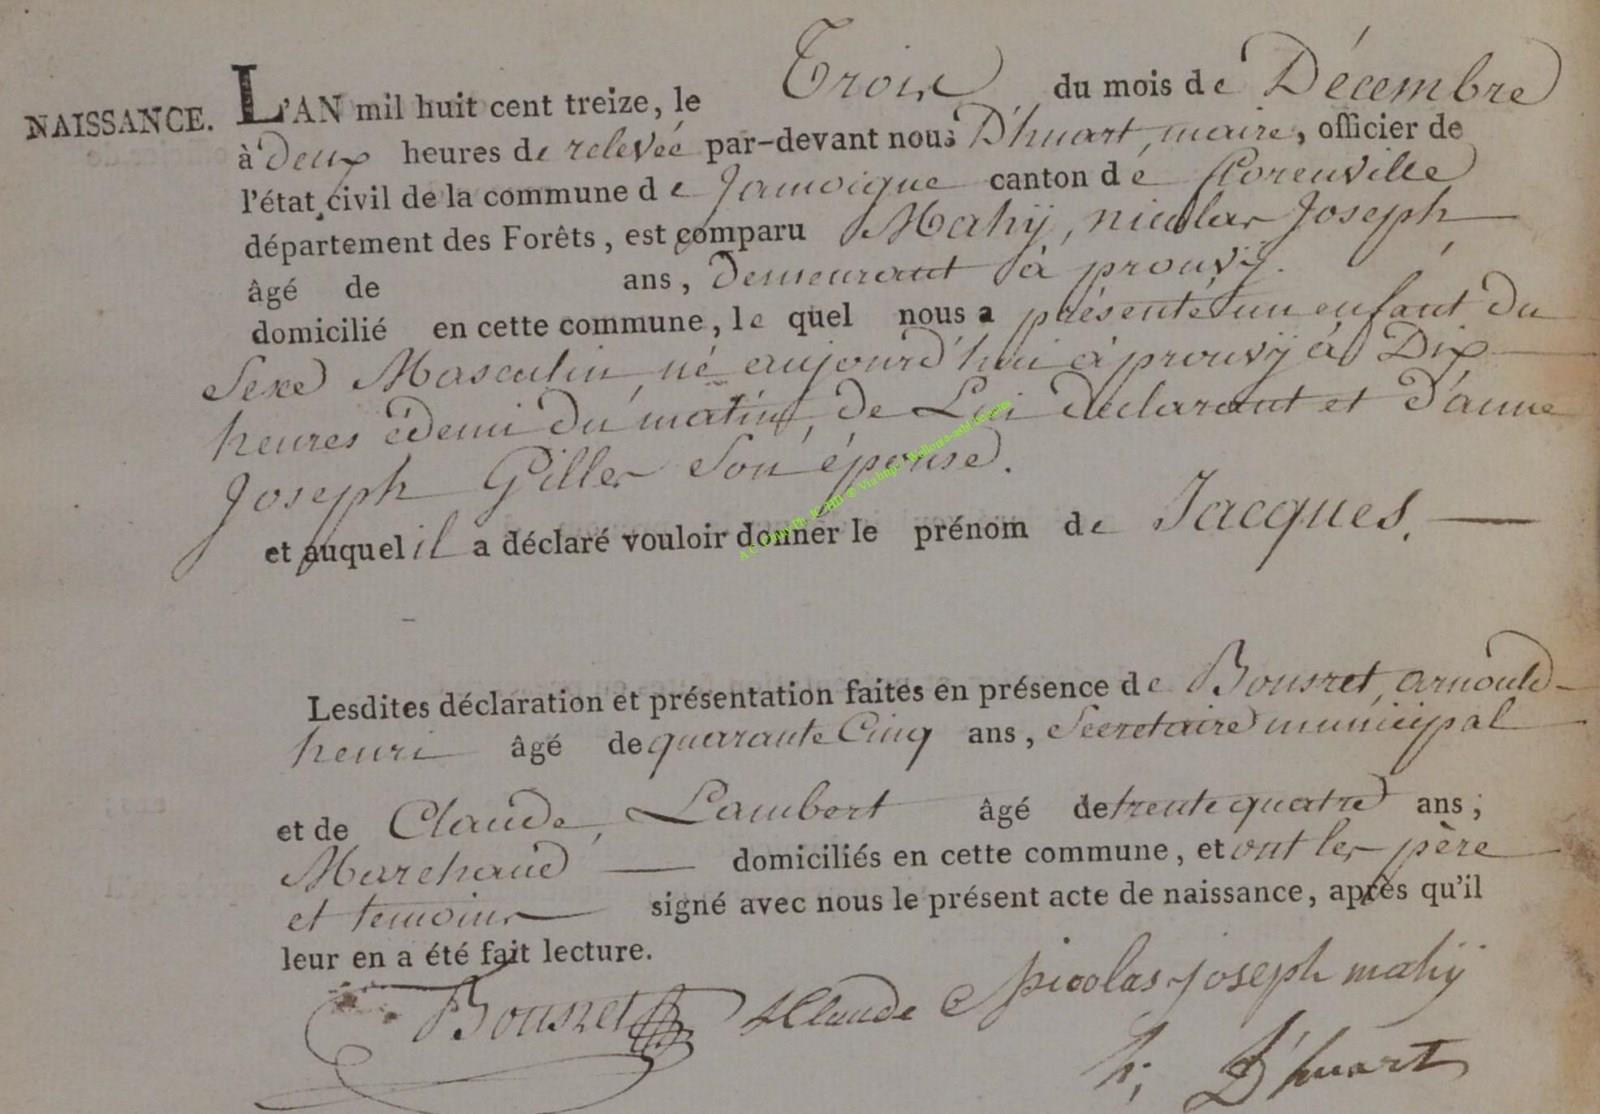 NAISSANCE.
L'AN mil huit cent treize, le Trois du mois de Décembre
à deux heures de relevée par-devant nous D'huart, maire, officier de
l'état civil de la commune de Jamoigne canton de florenville
département des Forêts, est comparu Mahÿ, nicolas Joseph
âgé de ans, demeurant à prouvÿ.
domicilié en cette commune, le quel nous a présenté un enfant du
Sexe Masculin, né aujourd'hui à prouvÿ à Dix
heures & demi du matin, de Lui déclarant et d'anne
Joseph Gilles Son épouse.
et auquel il a déclaré vouloir donner le prénom de Jacques.
Lesdites déclaration et présentation faites en présence de Bousret, arnould
henri âgé de quarante Cinq ans, Secretaire municipal
et de Claude, Lambert âgé de trente quatre ans;
Marchand domiciliés en cette commune, et ont les père
et temoins signé avec nous le présent acte de naissance, après qu'il
leur en a été fait lecture.
Bousret LClaude Nicolas joseph mahÿ
h; D'huart